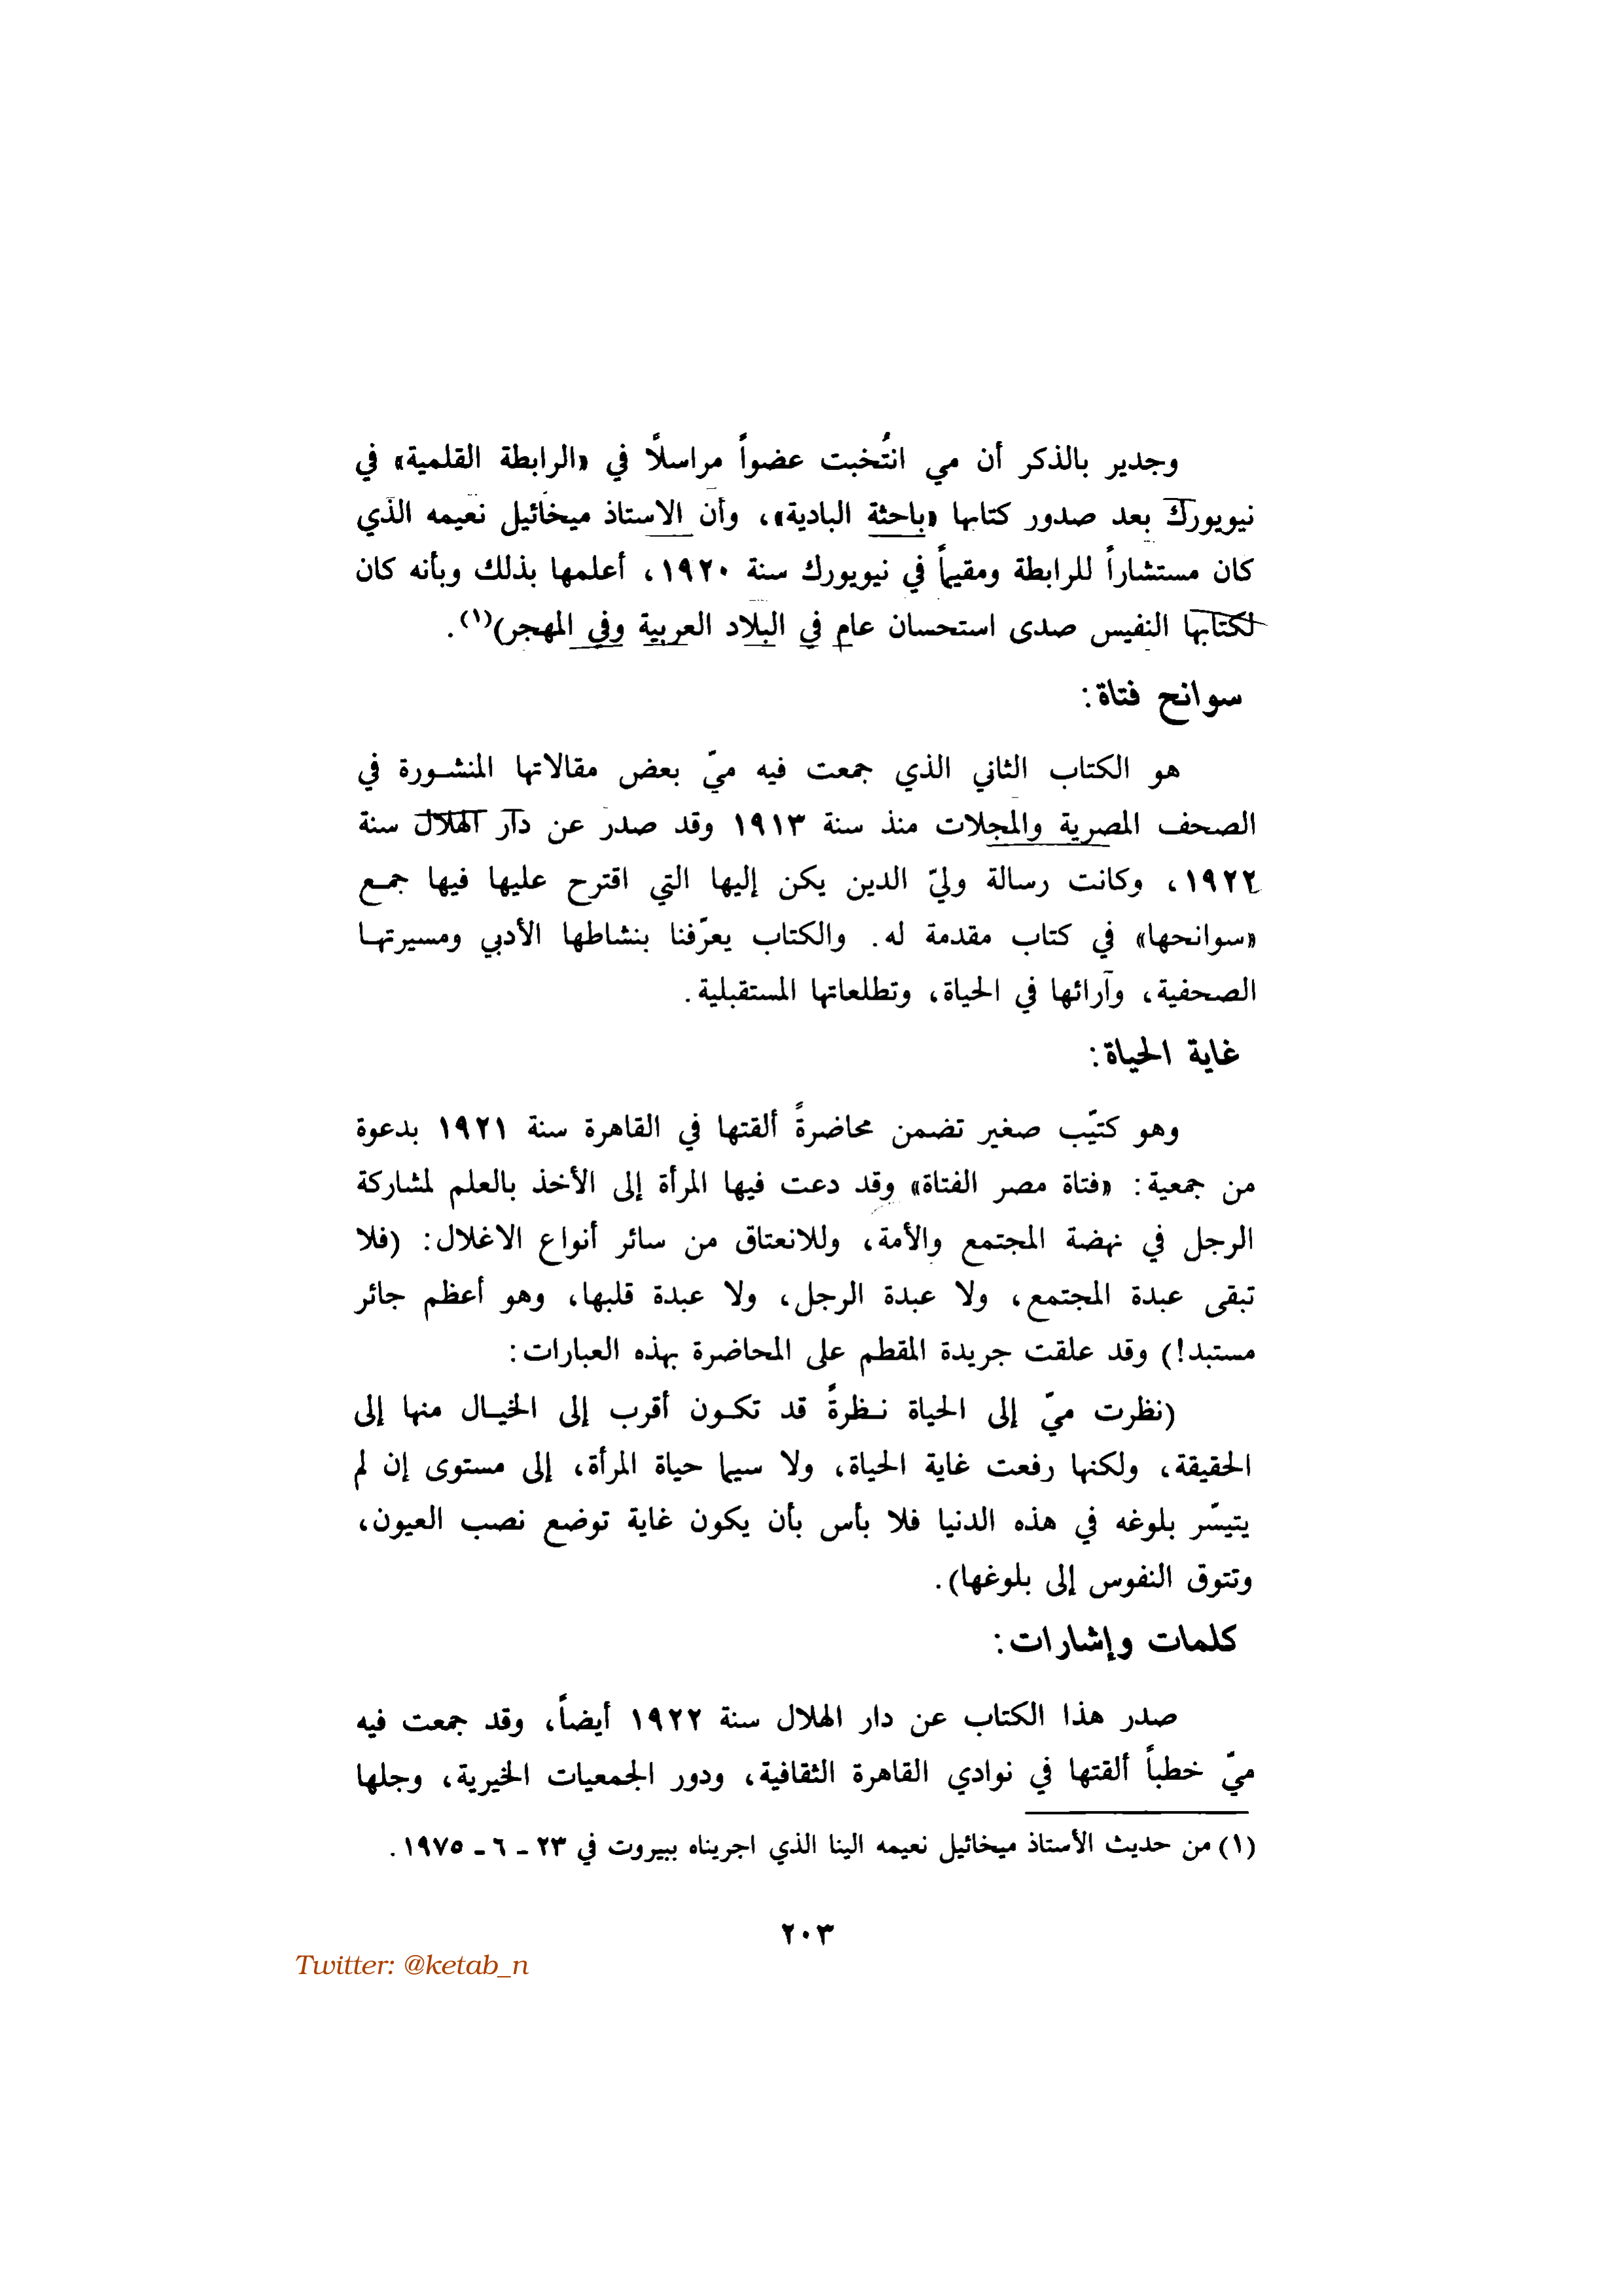 وجدير بالذكر أن مي انتُخبت عضواً مراسلًا في «الرابطة القلمية» في
نيويورك بعد صدور كتابها «باحثة البادية»، وأن الاستاذ ميخائيل نعيمه الذي
كان مستشاراً للرابطة ومقيماً في نيويورك سنة ١٩٢٠، أعلمها بذلك وبأنه كان
لكتابها النفيس صدى استحسان عام في البلاد العربية وفي المهجر)(١).
سوانح فتاة:
هو الكتاب الثاني الذي جمعت فيه ميّ بعض مقالاتها المنشورة في
الصحف المصرية والمجلات منذ سنة ١٩١٣ وقد صدر عن دار الهلال سنة
١٩٢٢، وكانت رسالة وليّ الدين يكن إليها التي اقترح عليها فيها جمع
«سوانحها» في كتاب مقدمة له. والكتاب يعرّفنا بنشاطها الأدبي ومسيرتها
الصحفية، وآرائها في الحياة، وتطلعاتها المستقبلية.
غاية الحياة:
وهو كتيّب صغير تضمن محاضرةً ألقتها في القاهرة سنة ١٩٢١ بدعوة
من جمعية: «فتاة مصر الفتاة» وقد دعت فيها المرأة إلى الأخذ بالعلم لمشاركة
الرجل في نهضة المجتمع والأمة، وللانعتاق من سائر أنواع الاغلال: (فلا
تبقى عبدة المجتمع، ولا عبدة الرجل، ولا عبدة قلبها، وهو أعظم جائر
مستبد!) وقد علقت جريدة المقطم على المحاضرة بهذه العبارات:
(نظرت ميّ إلى الحياة نظرةً قد تكون أقرب إلى الخيال منها إلى
الحقيقة، ولكنها رفعت غاية الحياة، ولا سيما حياة المرأة، إلى مستوى إن لم
يتيسّر بلوغه في هذه الدنيا فلا بأس بأن يكون غاية توضع نصب العيون،
وتتوق النفوس إلى بلوغها).
كلمات وإشارات:
صدر هذا الكتاب عن دار الهلال سنة ١٩٢٢ أيضاً، وقد جمعت فيه
ميّ خطباً ألقتها في نوادي القاهرة الثقافية، ودور الجمعيات الخيرية، وجلها
(١) من حديث الأستاذ ميخائيل نعيمه الينا الذي اجريناه ببيروت في ٢٣ - ٦ - ١٩٧٥.
٢٠٣
Twitter: @ketab_n